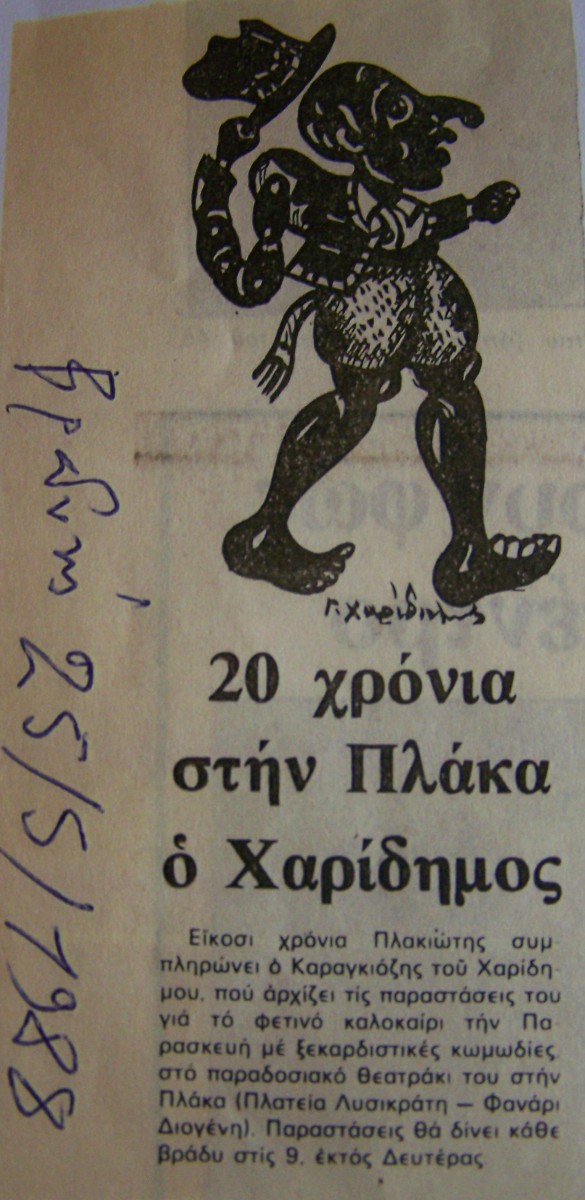 Γ. Χαρίδημος
20 χρόνια
στήν Πλάκα
ὁ Χαρίδημος
Εἴκοσι χρόνια Πλακιώτης συμ-
πληρώνει ὁ Καραγκιόζης τοῦ Χαρίδη-
μου, πού ἀρχίζει τίς παραστάσεις του
γιά τό φετινό καλοκαίρι τήν Πα-
ρασκευή μέ ξεκαρδιστικές κωμωδίες
στό παραδοσιακό θεατράκι του στήν
Πλάκα (Πλατεία Λυσικράτη — Φανάρι
Διογένη). Παραστάσεις θά δίνει κάθε
βράδυ στίς 9, ἐκτός Δευτέρας
βραδυνή 25/5/1988